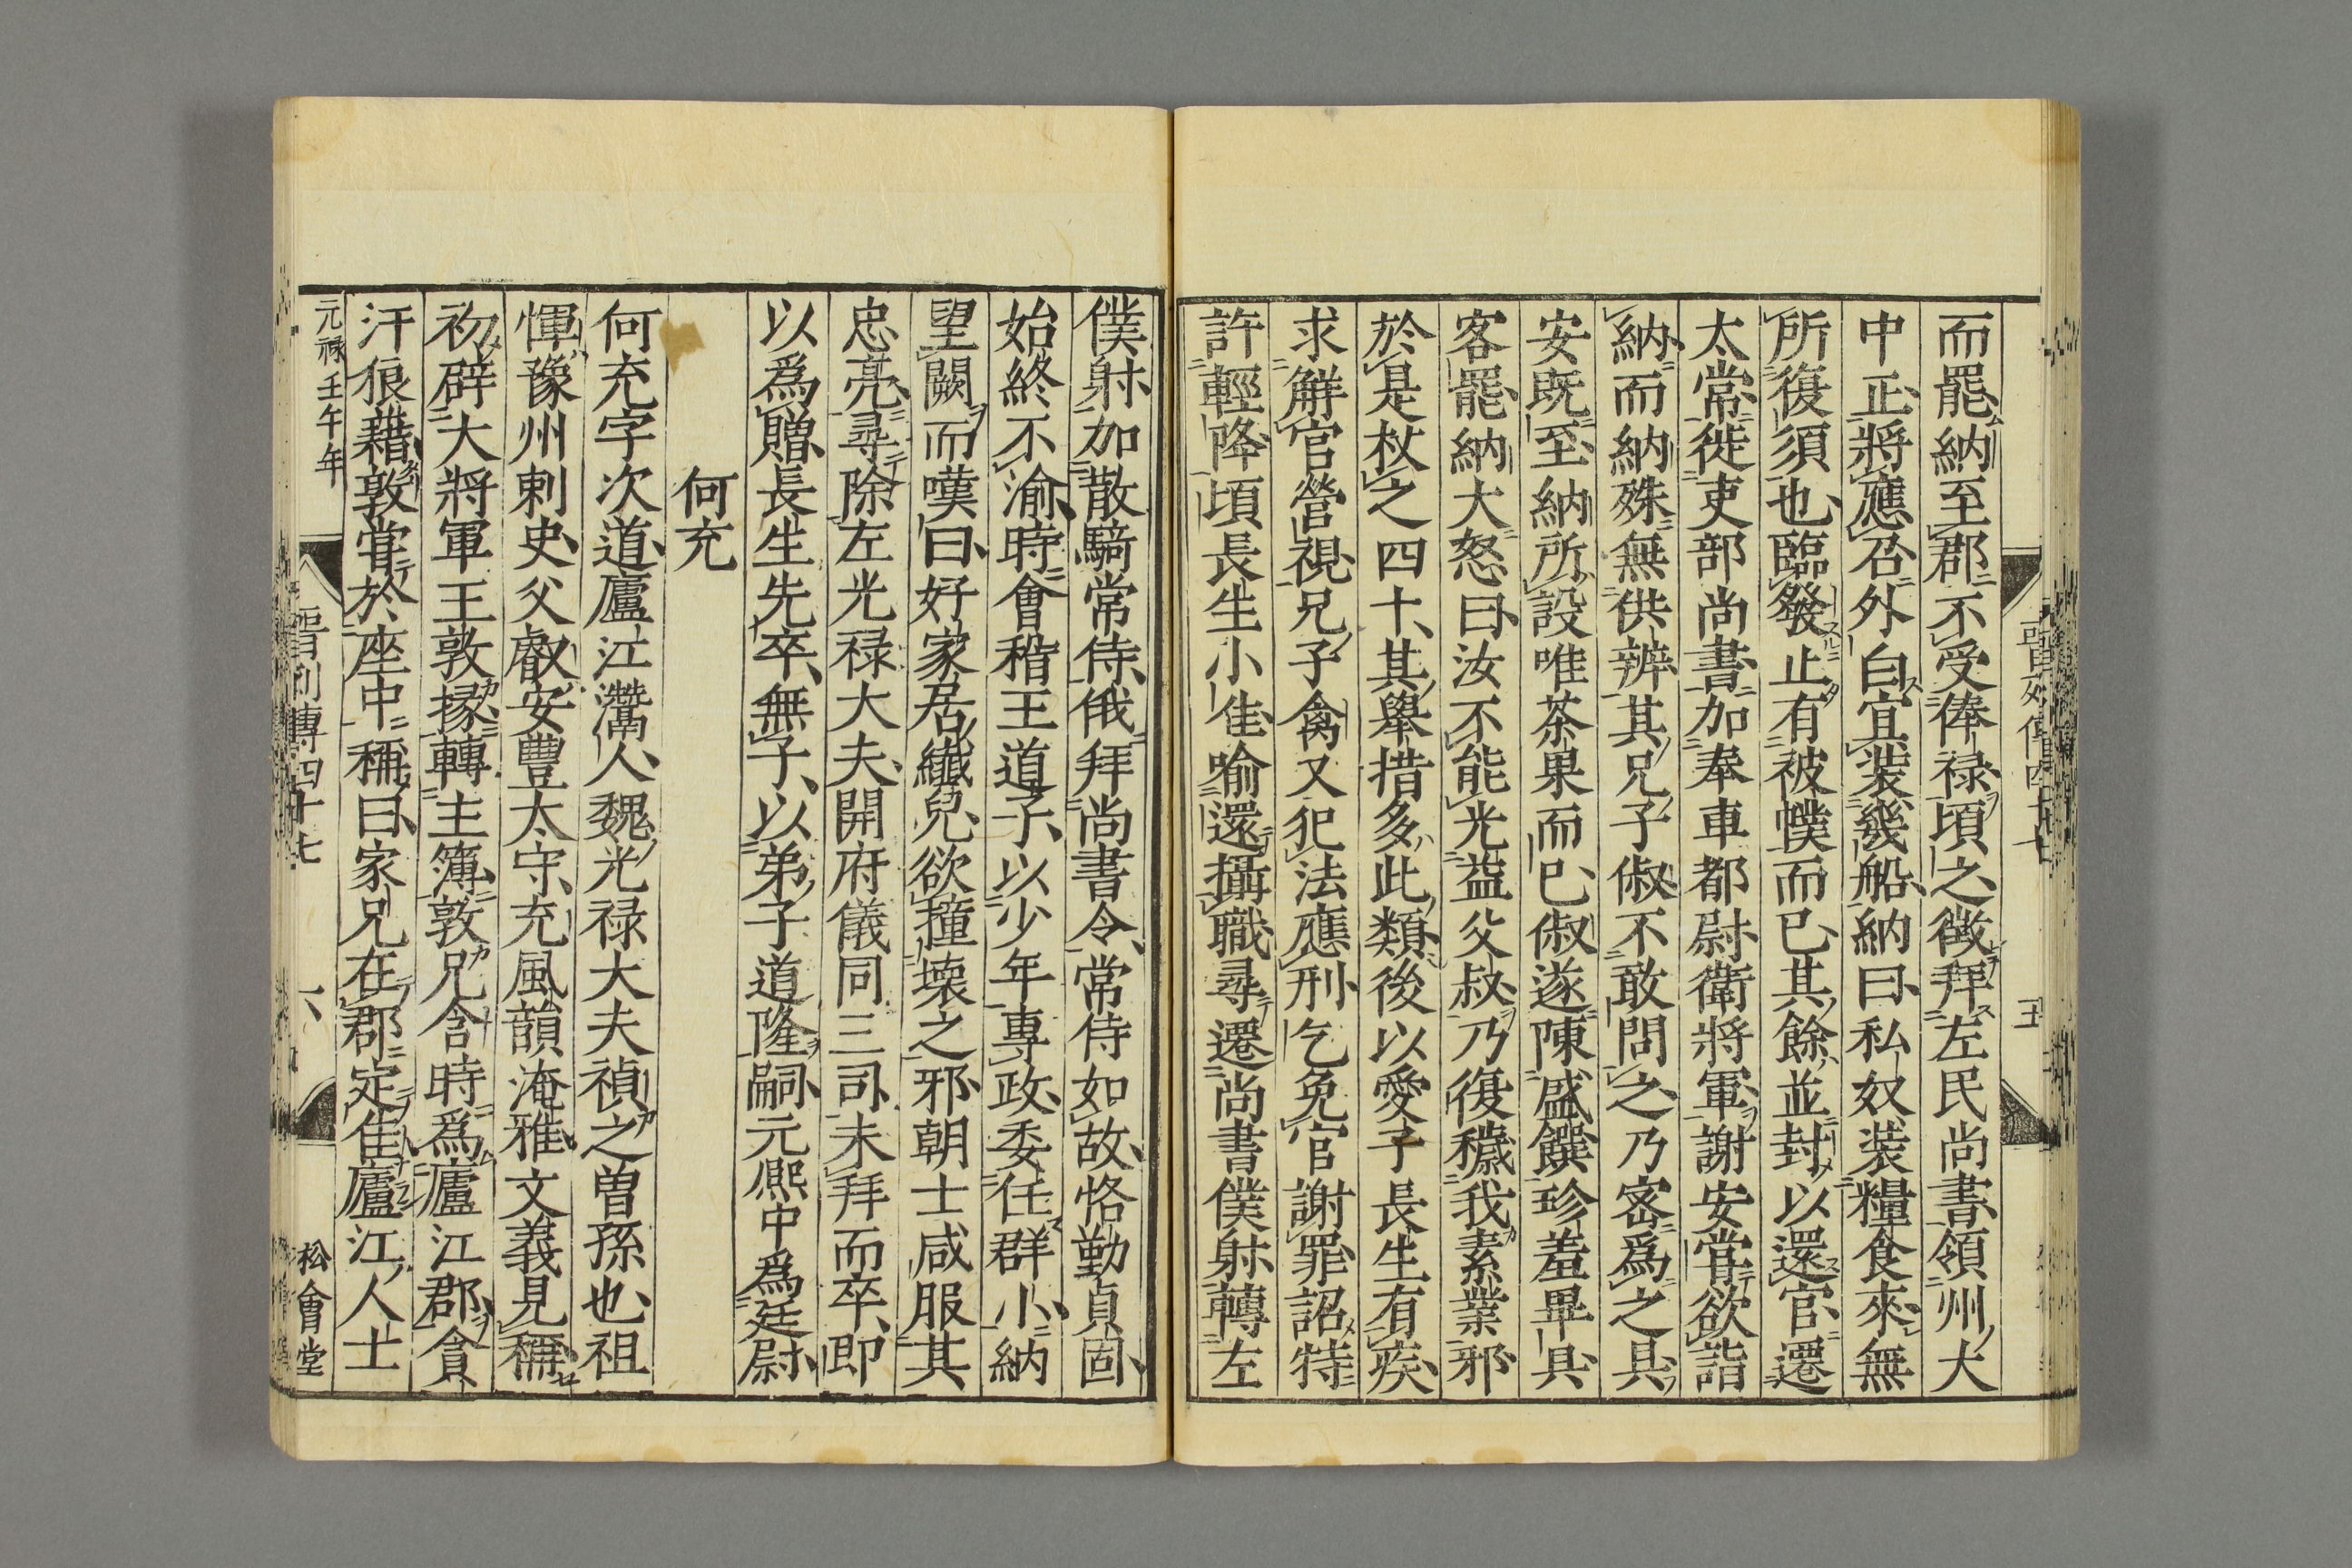 而罷納至郡不受俸祿頃之徵拜左民尚書領州大
中正將應召外白宜裝幾船納曰私奴裝糧食來無
所復須也臨發止有被幞而已其餘並封以還官遷
太常徙吏部尚書加奉車都尉衛將軍謝安甞欲詣
納而納殊無供辨其兄子俶不敢問之乃密爲之具
安既至納所設唯茶果而已俶遂陳盛饌珍羞畢具
客罷納大怒曰汝不能光益父叔乃復穢我素業邪
於是杖之四十其舉措多此類後以愛子長生有疾
求解官營視兄子禽又犯法應刑乞免官謝罪詔特
許輕降頃長生小佳喻還攝職尋遷尚書僕射轉左
僕射加散騎常侍俄拜尚書令常侍如故恪勤貞固
始終不渝時會稽王道子以少年專政委任群小納
望闕而嘆曰好家居纖兒欲撞壞之邪朝士咸服其
忠亮尋除左光祿大夫開府儀同三司未拜而卒即
以爲贈長生先卒無子以弟子道隆嗣元熈中爲廷尉
何充
何充字次道廬江灊人魏光祿大夫禎之曾孫也祖
惲豫州刺史父叡安豐太守充風韻淹雅文義見稱
初辟大將軍王敦掾轉主簿敦兄含時爲廬江郡貪
汗狼藉敦甞於座中稱曰家兄在郡定佳廬江人士
元祿壬午年
晉列傳四十七
六
松會堂